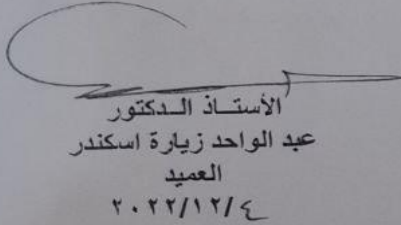 الأستاذ الدكتور
عبد الواحد زيارة اسكندر
العميد
٢٠٢٢/١٢/٤